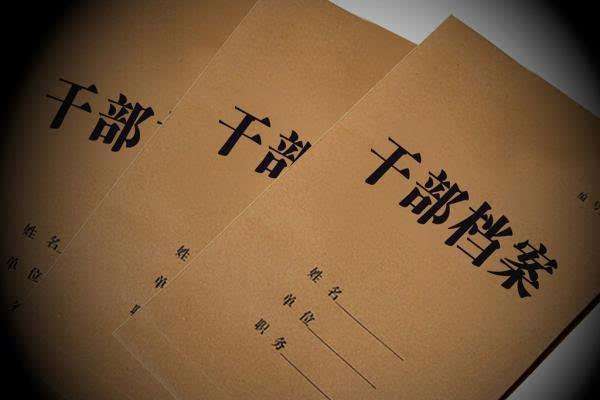 干部
姓名
单位
干部
姓
单
干部档案
编号
姓名
单位
职务